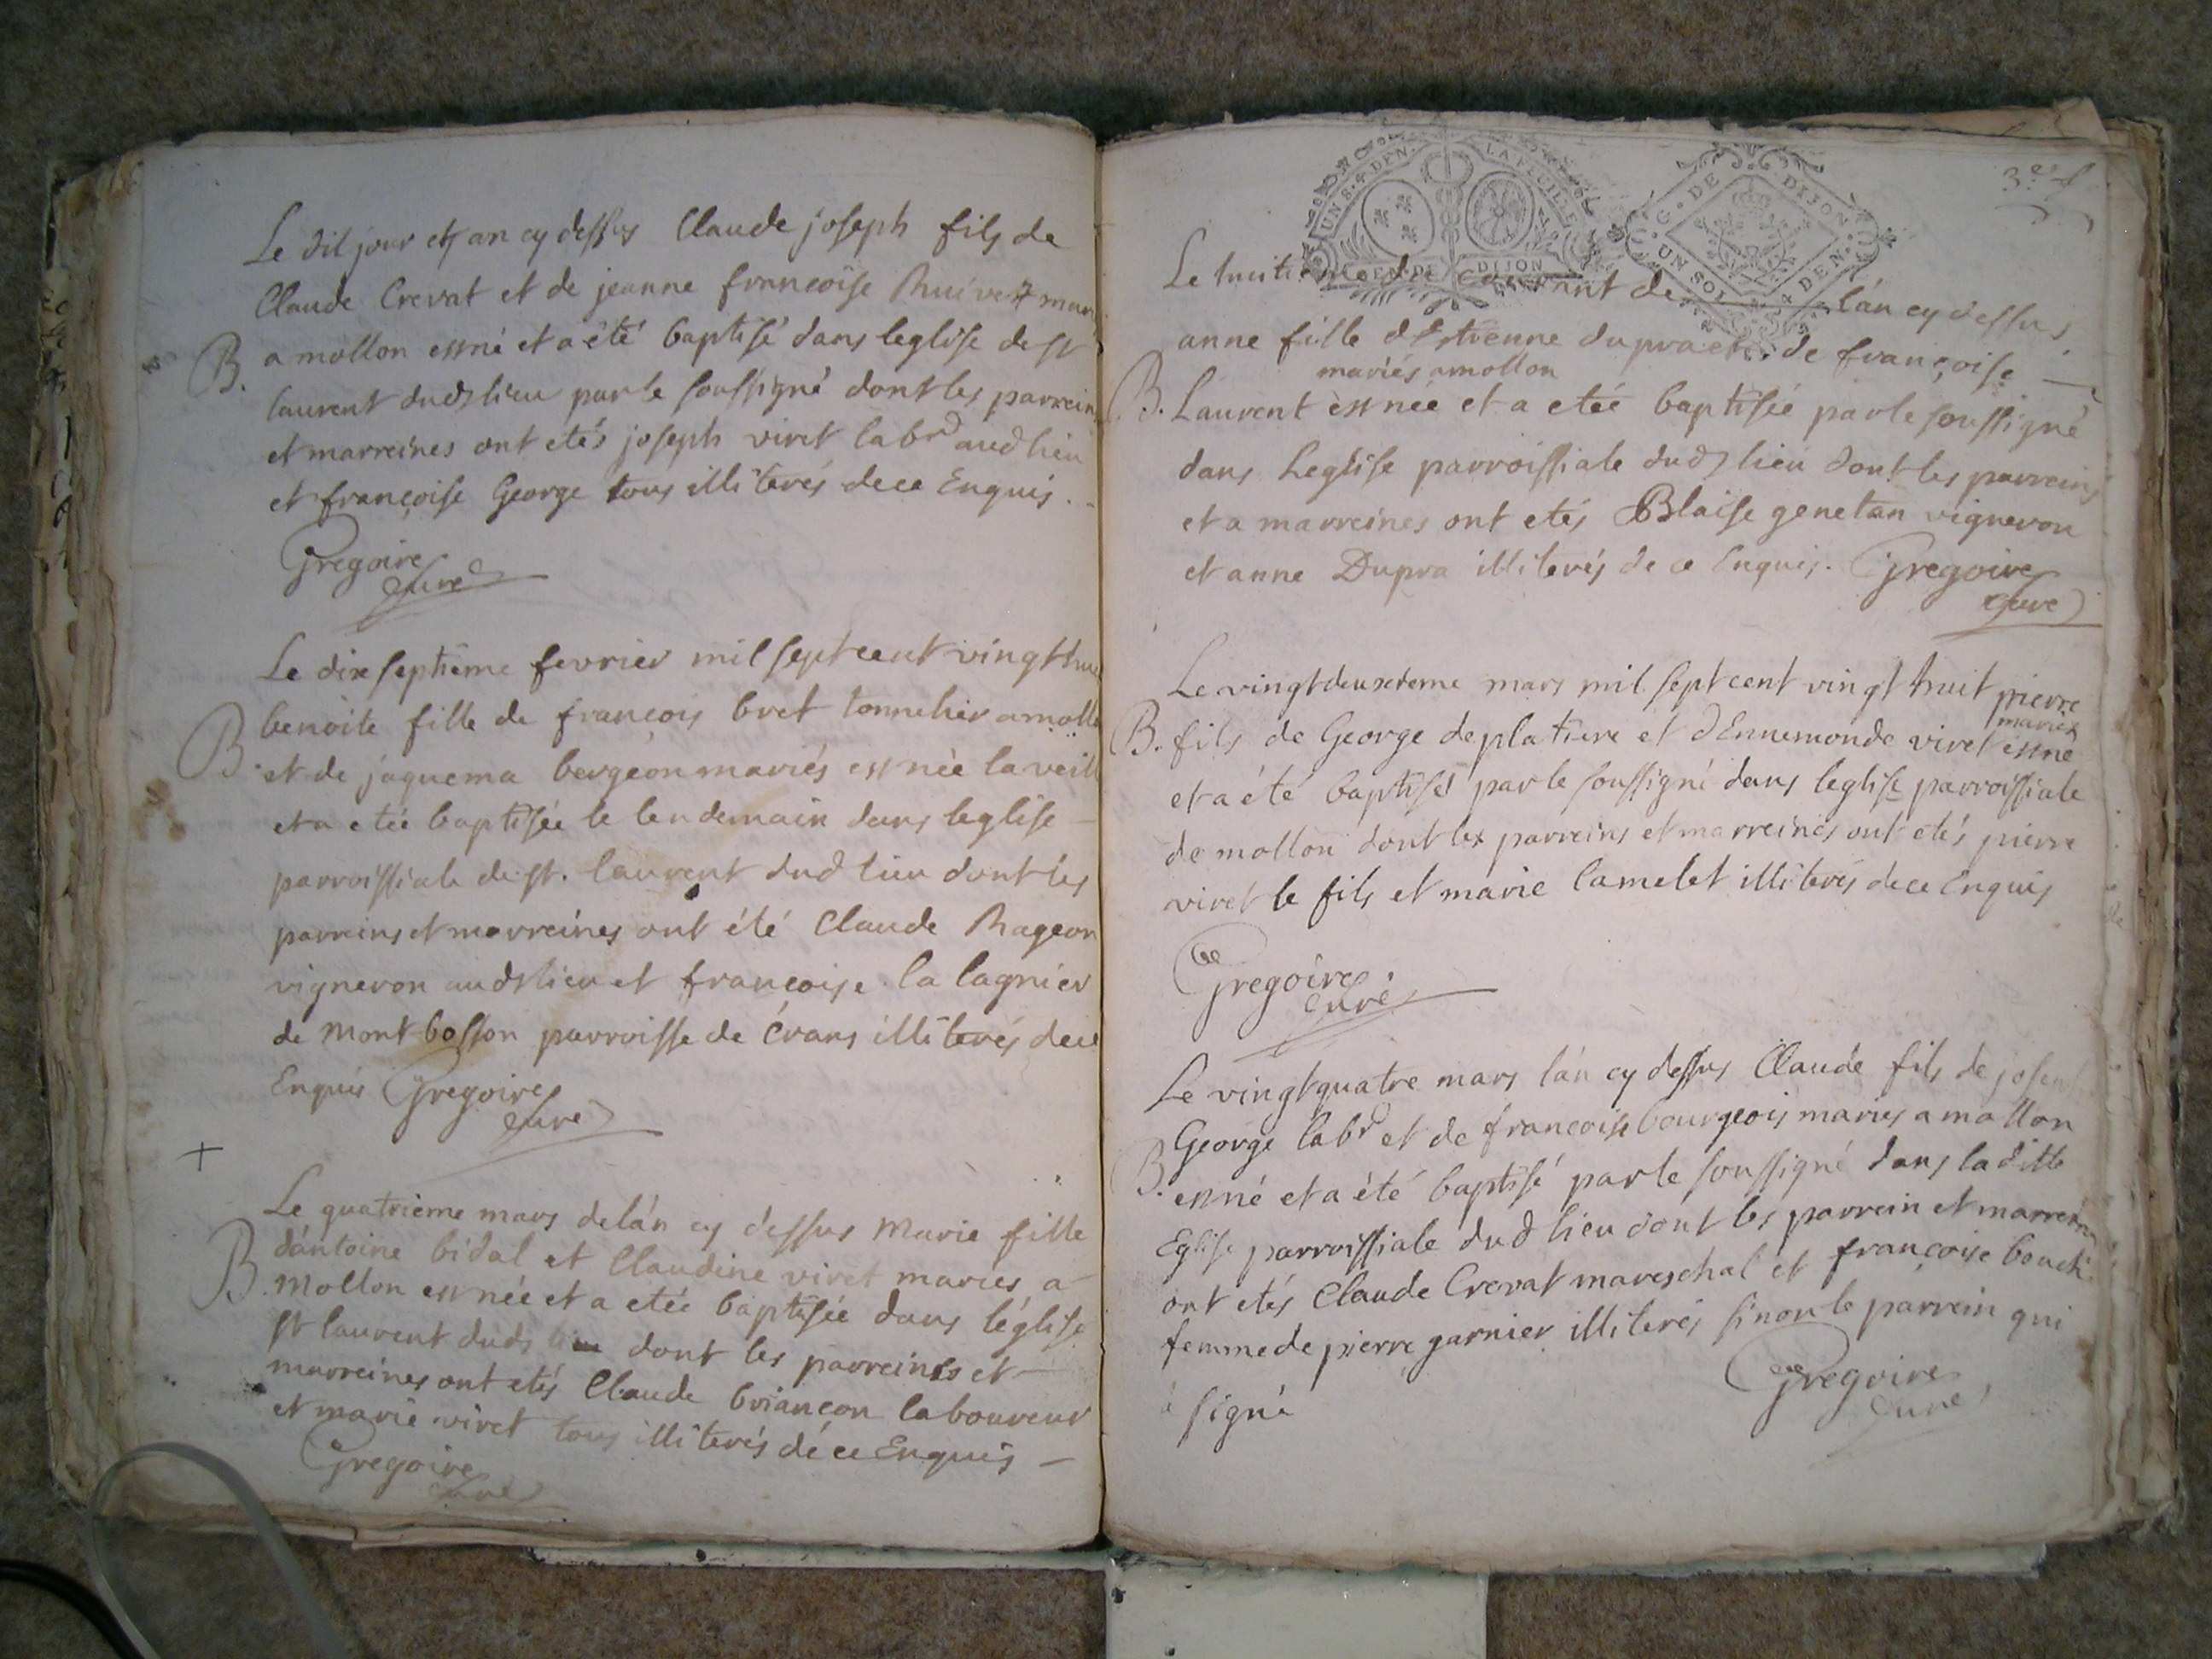 Le dit jour et an cy dessus Claude joseph fils de
Claude Crevat et de jeanne francoise
B. a mollon est né et a été baptisé dans leglise de st
laurent dud lieu par le soussigné dont les parreins
et marreines ont etés joseph viret labr aud lieu
et françoise George tous illiterés de ce Enquis.
Gregoire
Curé
Le dixseptième fevrier mil sept cent vingt
benoite fille de françois bret tonnelier a
B. et de jaquema bergeon mariés est née la veille
et a etée baptisée le lendemain dans leglise
parroissiale de st. laurent dud lieu dont les
parreins et marreines ont été Claude Rageon
vigneron aud lieu et françoise la lagnier
de Montbosson parroisse de Crans illiterés de ce
Enquis Gregoire
Curé
Le quatrième mars de lán cy dessus Marie fille
dántoine bidal et Claudine viret mariés a
B. Mollon est née et a etée baptisée dans léglise
st laurent dud lieu dont les parreins et
marreines ont etés Claude briançon laboureur
et marie viret tous illiterés dé ce Enquis
Gregoire
Curé
UN S. 4 DEN. LA FEUILLE
GEN. DE DIJON
G. DE DIJON
UN SOL 4 DEN.
3e f
Le huitieme du courant de lán cy dessus
anne fille dEtienne dupra et de françoise
mariés a mollon
B. Laurent est née et a etée baptisée par le soussigné
dans Leglise parroissiale dud lieu dont les parreins
et a marreines ont etés Blaise genetan vigneron
et anne Dupra illiterés de ce Enquis. Gregoire
Curé
Le vingtdeuxieme mars mil sept cent vingt huit pierre
mariés
B. fils de George deplatiere et dEnnemonde viret est né
et a été baptisé par le soussigné dans leglise parroissiale
de mollon dont les parreins et marreines ont etés pierre
viret le fils et marie lamelet illiterés de ce Enquis
Gregoire
Curé
Le vingtquatre mars lán cy dessus Claude fils de joseph
George labr et de francoise bourgeois mariés a mollon
B. est né et a été baptisé par le soussigné dans laditte
Eglise parroissiale dud lieu dont les parrein et marreine
ont etés Claude Crevat mareschal et françoise
femme de pierre garnier illiterés sinon le parrein qui
à signé
Gregoire
Curé